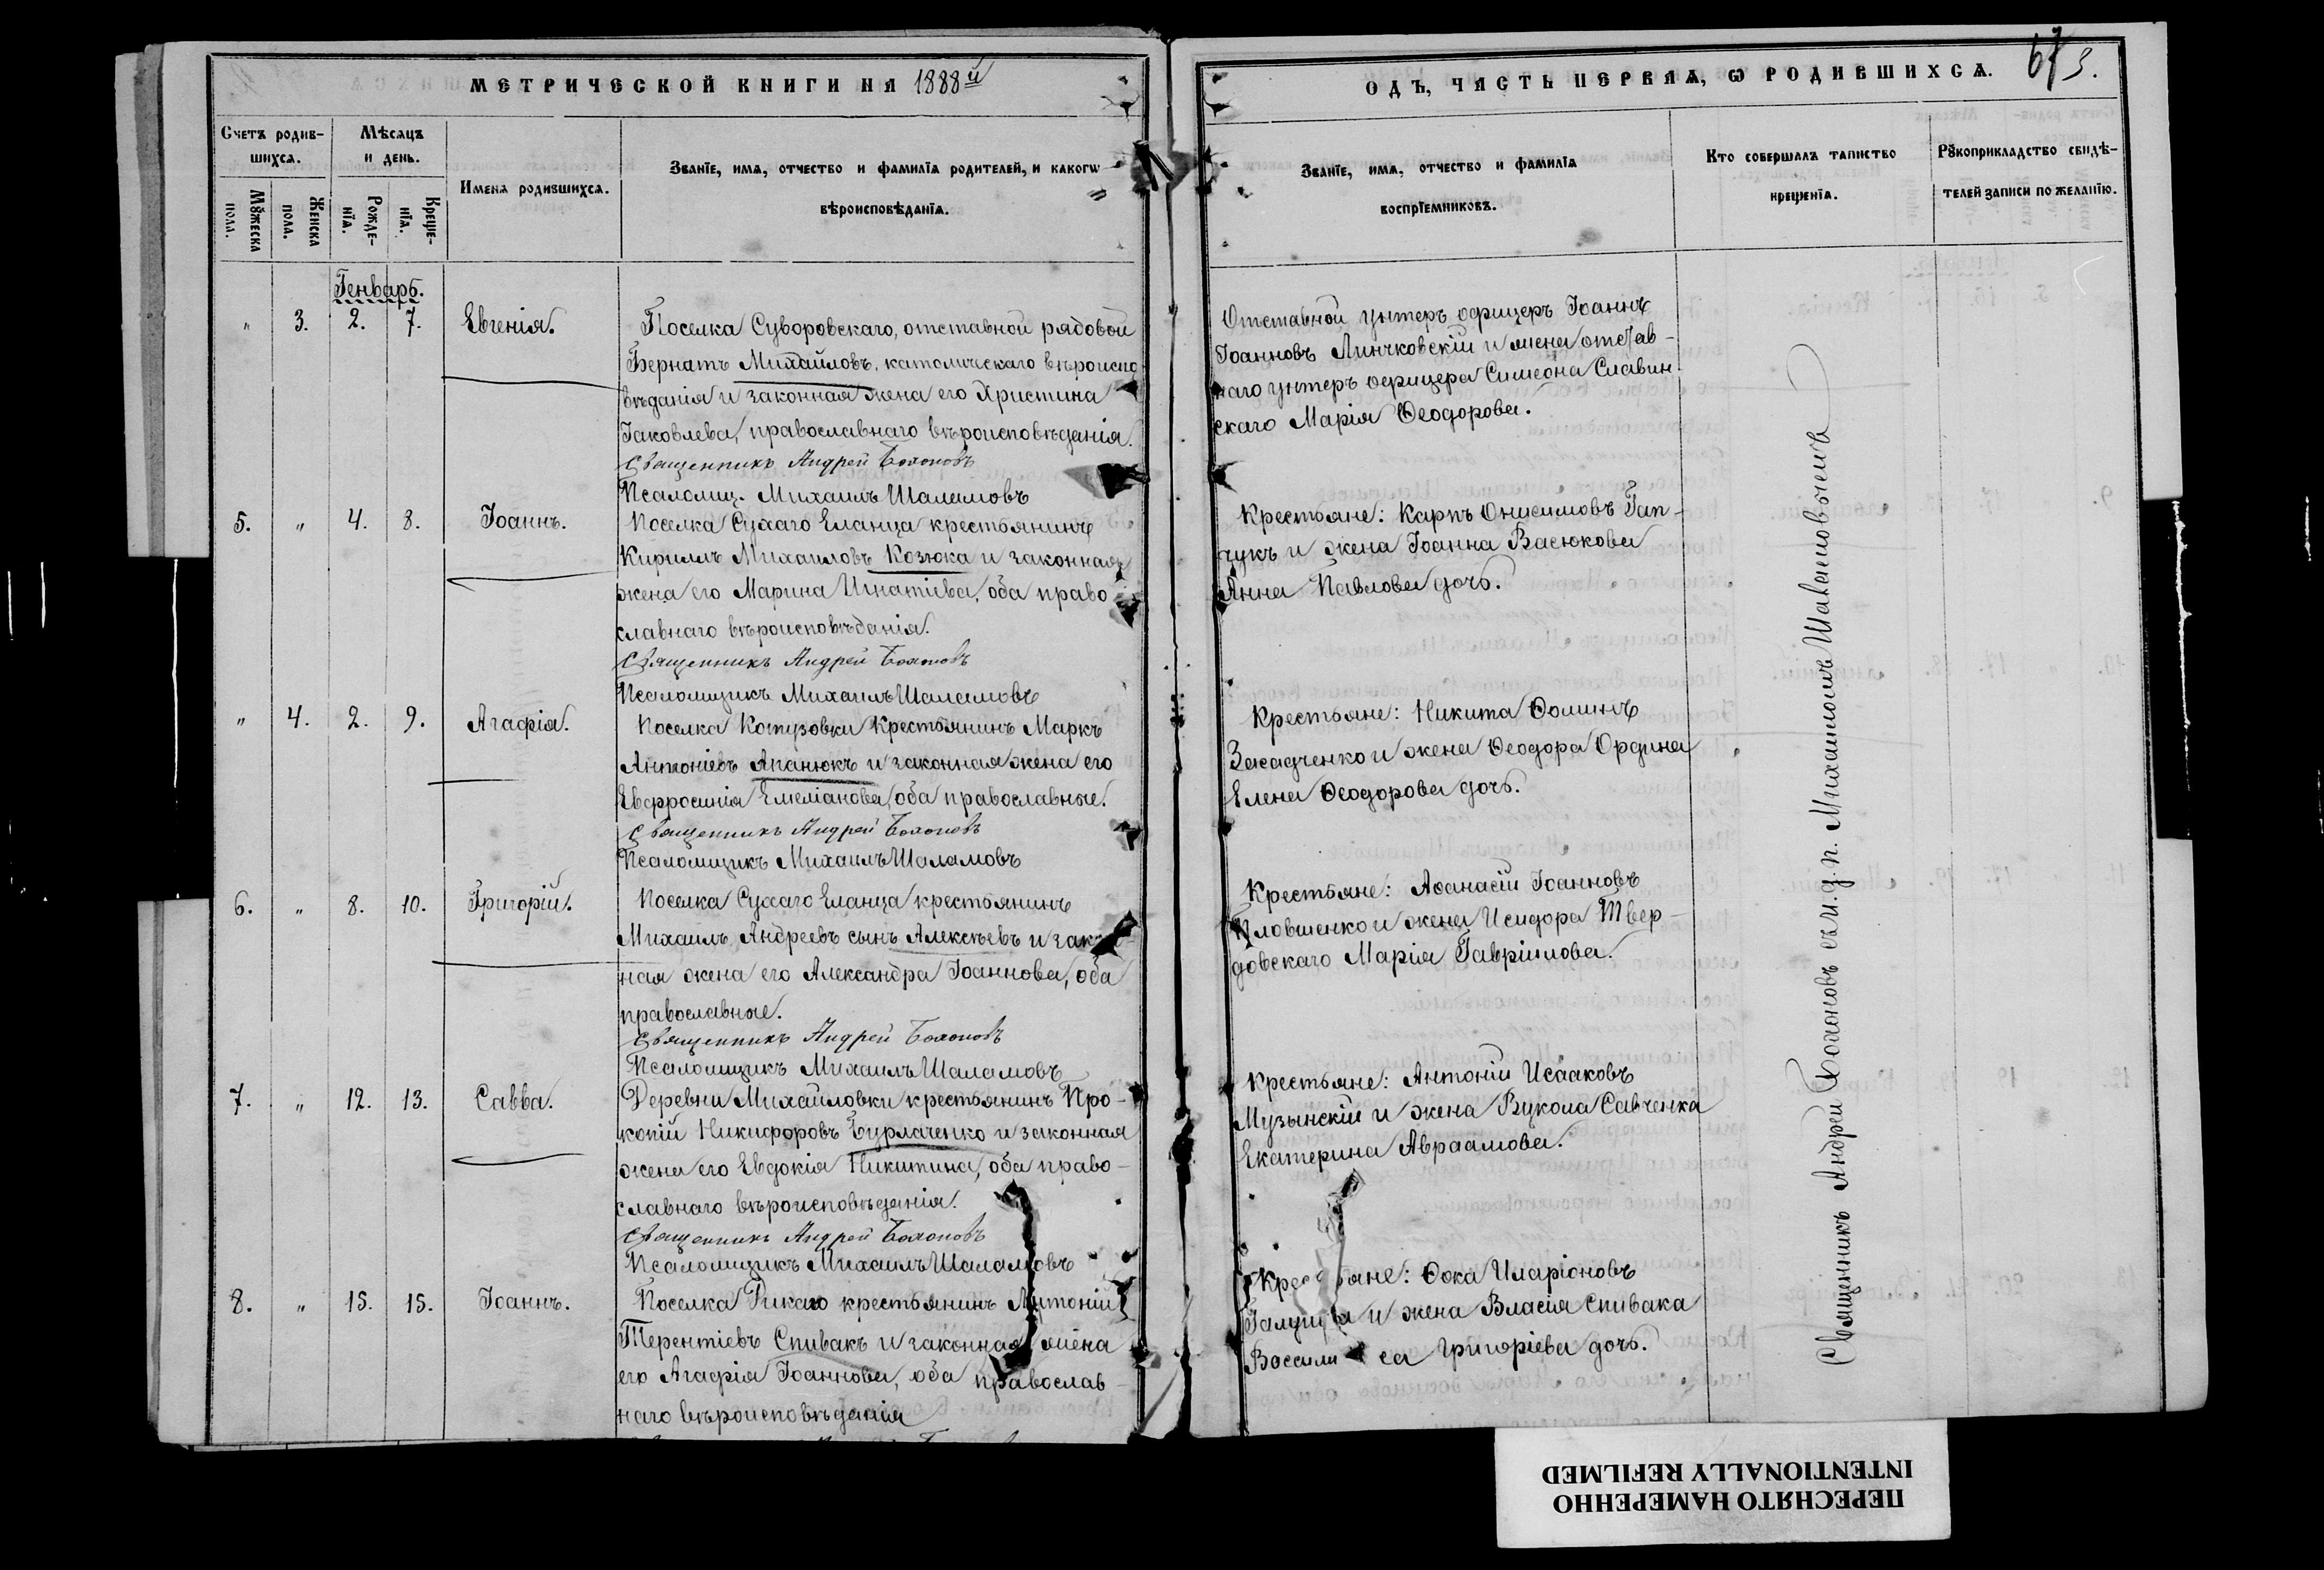 МЕТРИЧЕСКОЙ КНИГИ НА 1888й
Счетъ родив-
шихся.
Мѣсяцъ
и день.
Имена родившихся.
Званїе, имя, отчество и фамилїя родителей, и какогѡ
вѣроисповѣданїя.
Мꙋжеска
пола.
Женска
пола.
Рожде-
нїя.
Креще-
нїя.
Генварь.
" 3. 2. 7. Евгенія.
Поселка Суворовскаго, отставной рядовой
Бернатъ Михайловъ, католическаго вѣроиспо
вѣданія и законная жена его Христина
Іаковлева, православнаго вѣроисповѣданія.
Священникъ Андрей
Псаломщ. Михаилъ Шаламовъ
5. " 4. 8. Іоаннъ.
Поселка Сухаго Еланца крестьянинъ
Кириллъ Михаиловъ Козюка и законная
жена его Марина Игнатіева, оба право
славнаго вѣроисповѣданія.
Священникъ Андрей
Псаломщикъ Михаилъ Шаламовъ
" 4. 2. 9. Агафія.
Поселка Котузовки крестьянинъ Маркъ
Антоніевъ Апанюкъ и законная жена его
Евфросинія Емеліанова, оба православные.
Священникъ Андрей
Псаломщикъ Михаилъ Шаламовъ
6. " 8. 10. Григорій.
Поселка Сухаго Еланца крестьянинъ
Михаилъ Андреевъ сынъ Алексѣевъ и зак
ная жена его Александра Іоаннова, оба
православные.
Священникъ Андрей
Псаломщикъ Михаилъ Шаламовъ
7. " 12. 13. Савва.
Деревни Михайловки крестьянинъ Про-
копій Никифоровъ Бурлаченко и законная
жена его Евдокія Никитина, оба право-
славнаго вѣроисповѣданія.
Священникъ Андрей
Псаломщикъ Михаилъ Шаламовъ
8. " 15. 15. Іоаннъ.
Поселка крестьянинъ Антоній
Терентіевъ Спивакъ и законная жена
его Агафія Іоаннова, оба православ-
наго вѣроисповѣданія
ОДЪ, ЧАСТЬ ПЕРВАЯ, Ѡ РОДИВШИХСЯ.
3.
Званїе, имя, отчество и фамилїя
воспрїемниковъ.
Кто совершалъ таинство
крещенїя.
Рꙋкоприкладство свидѣ-
телей записи по желанїю.
Отставной унтеръ офицеръ Іоаннъ
Іоанновъ Линчковскій и жена отстав-
наго унтеръ офицера Симеона Славин-
скаго Марія Ѳеодорова.
Крестьяне: Карпъ Онисимовъ Гап-
чукъ и жена Іоанна Васюкова
Анна Павлова дочь.
Крестьяне: Никита Ѳоминъ
Засадченко и жена Ѳеодора Ордина
Елена Ѳеодорова дочь.
Крестьяне: Аѳанасій Іоанновъ
и жена Исидора Твер-
довскаго Марія Гавріилова.
Крестьяне: Антоній Исааковъ
Музынскій и жена Вукола Савченка
Екатерина Авраамова.
Крестьяне: Ѳока Иларіоновъ
и жена Власія Спивака
Григоріева дочь.
Священникъ Андрей съ и. д. п. Михаиломъ
ПЕРЕСНЯТО НАМЕРЕННО
INTENTIONALLY REFILMED